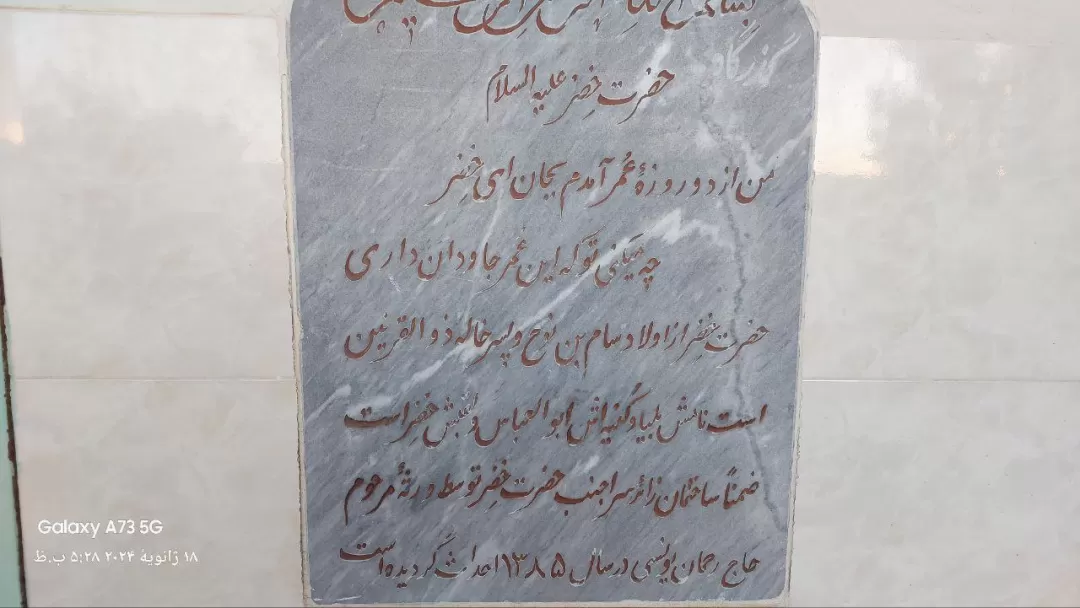 گذرگاه
حضرت خضر علیه السلام
من از دو روزهٔ عمر آمدم بجان ای خضر
چه میکنی تو که این عمر جاودان داری
حضرت خضر از اولاد سام بن نوح و پسر خاله ذوالقرنین
است نامش بلیا و کنیه اش ابوالعباس و لقبش خضر است
ضمناً ساختمان زائرسرا جنب حضرت خضر توسط ورثهٔ مرحوم
حاج رحمان یونسی در سال ۱۳۸۵ احداث گردیده است
Galaxy A73 5G
۱۸ ژانویهٔ ۲۰۲۴ ۵:۲۸ ب.ظ